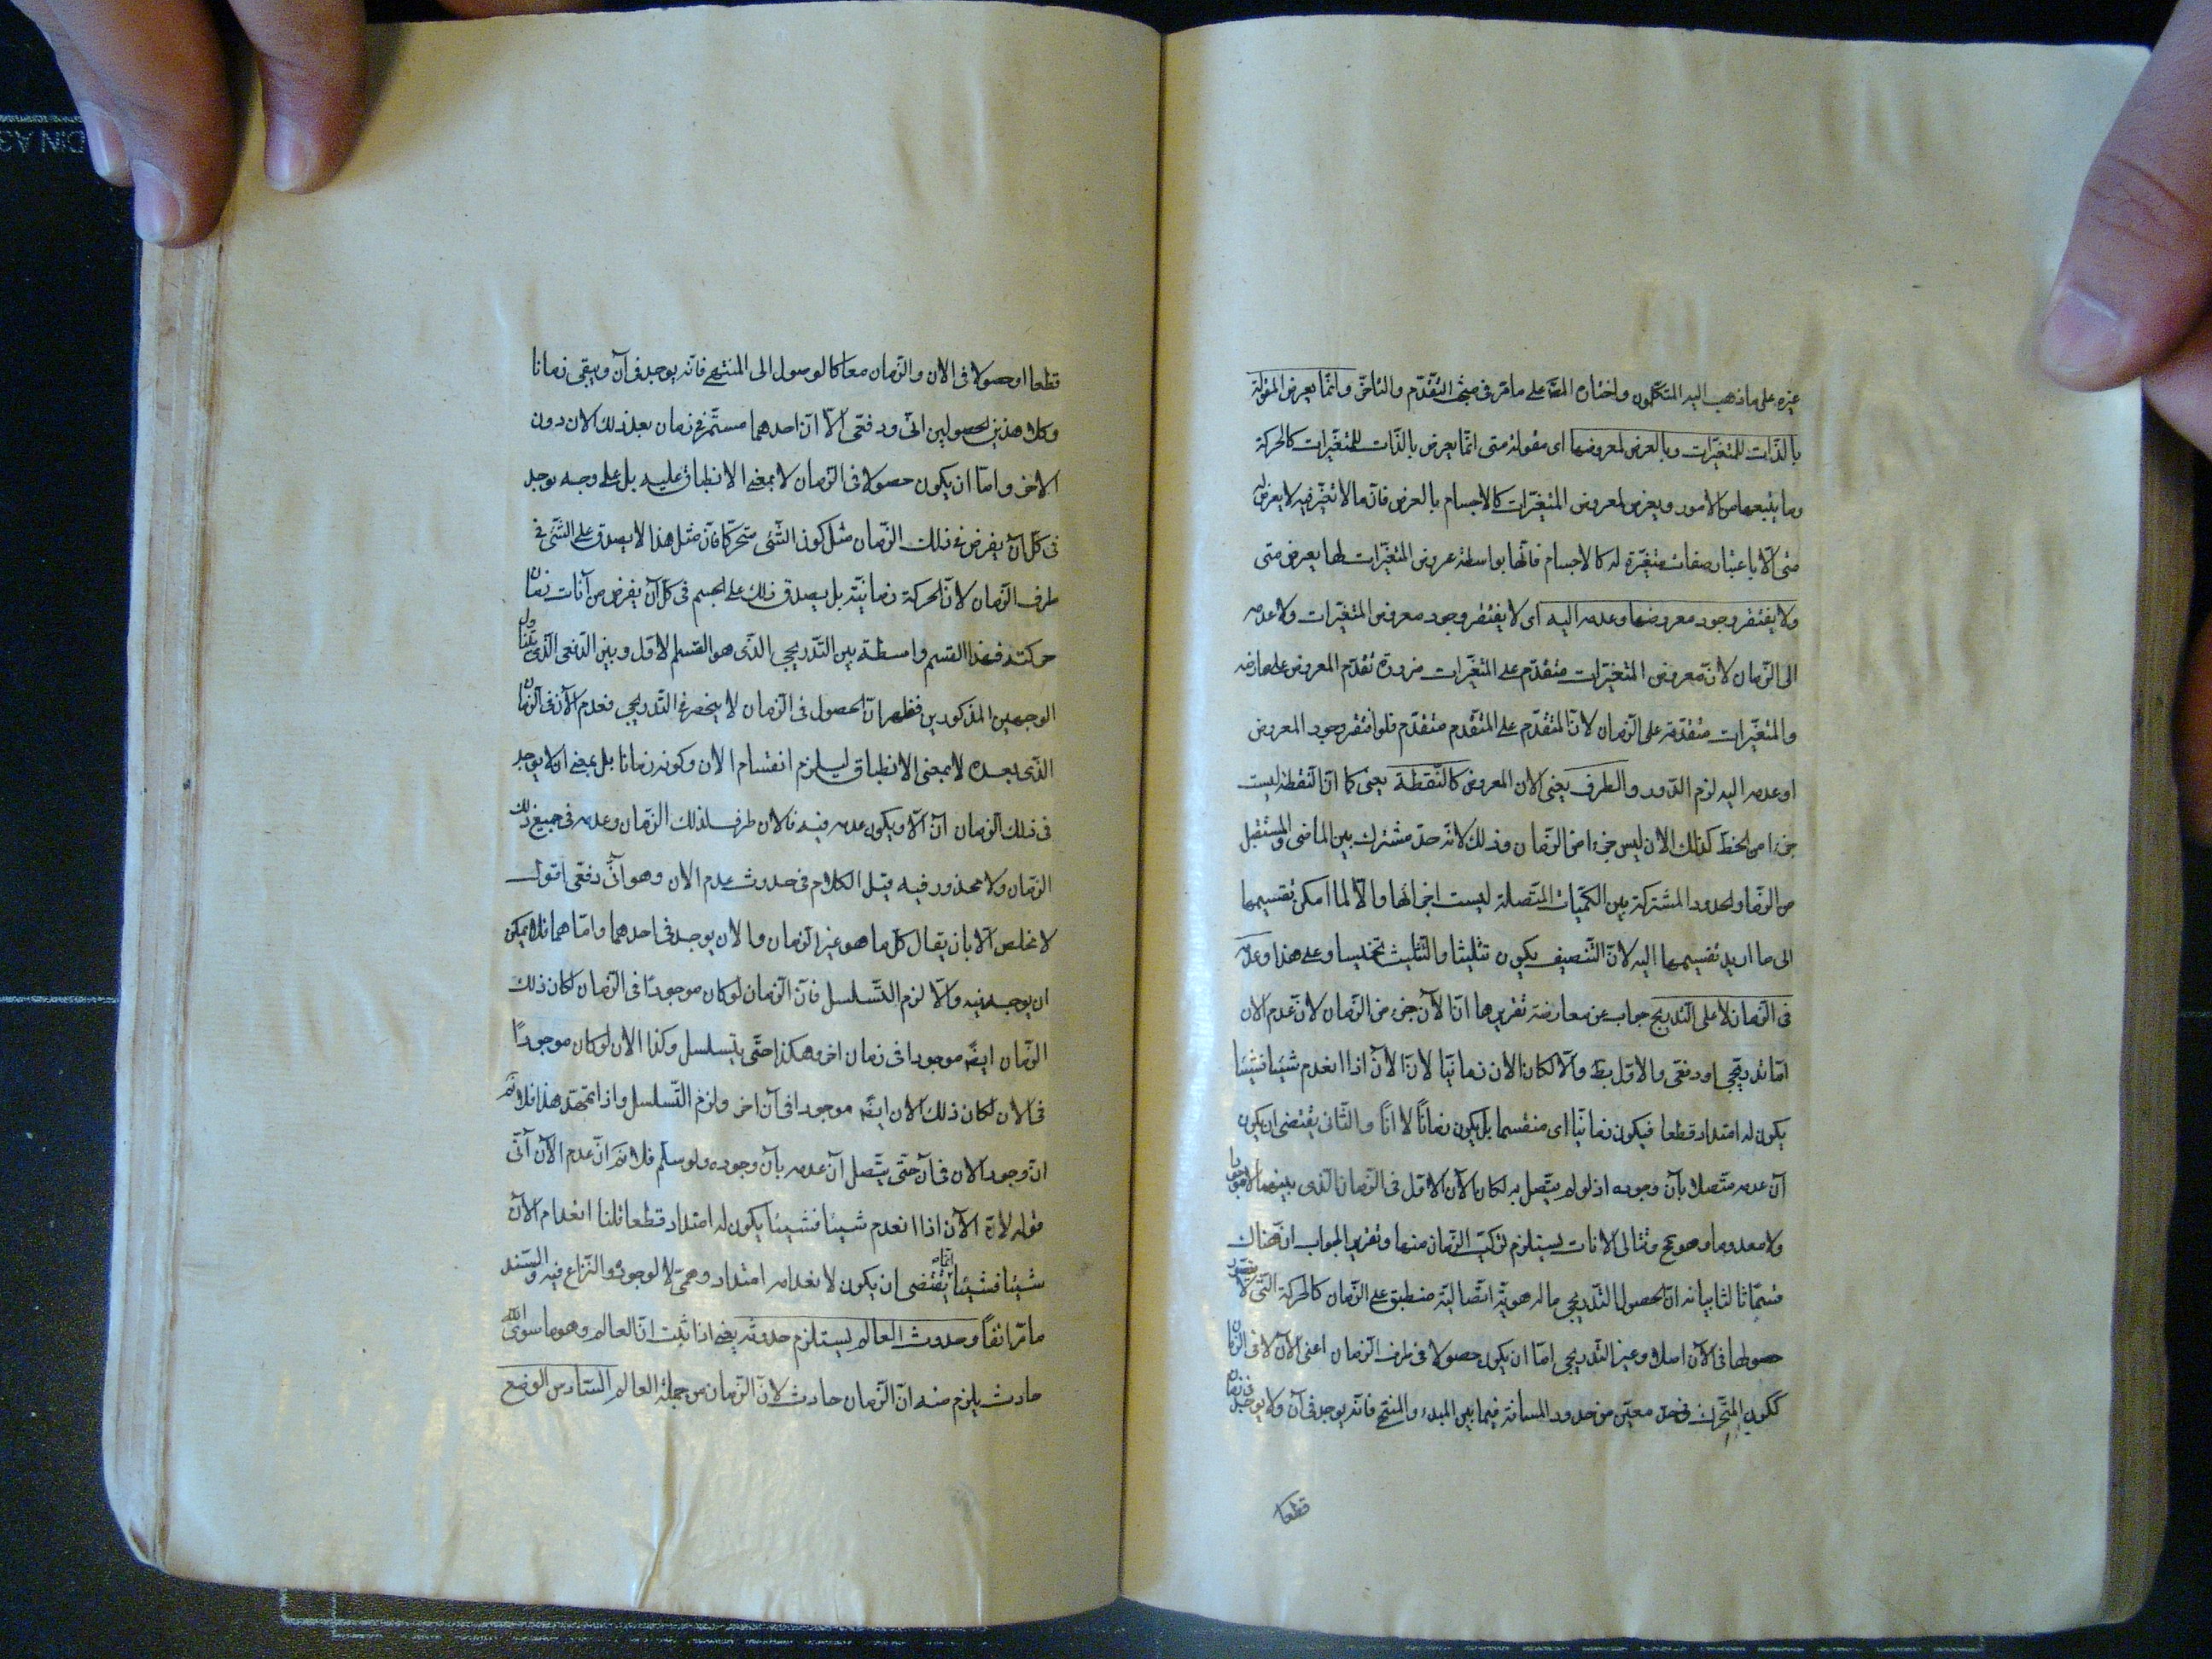 غيره على ما ذهب اليه المتكلمون واختاره المصّ على ما مرّ فى مبحث التقدّم والتاخّر وانّما يعرض المقولة
بالذّات للمتغيّرات وبالعرض لمعروضها اى مقولة متى انّما يعرض بالذّات للمتغيّرات كالحركة
وما يتبعها من الامور ويعرض لمعروض المتغيّرات كالاجسام بالعرض فانّ ما لا تغيّر فيه لا يعرض له
متى الّا باعتبار صفات متغيّرة له كالاجسام فانّها بواسطة عروض المتغيّرات لها يعرض متى
ولا يفتقر وجود معروضها وعدمه اليه اى لا يفتقر وجود معروض المتغيّرات ولا عدمه
الى الزّمان لانّ معروض المتغيّرات متقدّم على المتغيّرات ضرورة تقدّم المعروض على عارضه
والمتغيّرات متقدّمة على الزّمان لانّ المتقدّم على المتقدّم متقدّم فلو افتقر وجود المعروض
او عدمه اليه لزم الدّور والطرف يعنى الان المعروض كالنّقطة يعنى كما انّ النّقطة ليست
جزءا من الخطّ كذلك الان ليس جزءا من الزّمان وذلك لانّه حدّ مشترك بين الماضى والمستقبل
من الزّمان والحدود المشتركة بين الكمّيات المتّصلة ليست اجزائها والّا لما امكن تقسيمها
الى ما اريد تقسيمها اليه لانّ التّنصيف يكون تثليثا والتّثليث تخميسا وعلى هذا وعدمه
فى الزّمان لا على التّدريج جواب عن معارضة تقريرها انّ الآن جزء من الزّمان لانّ عدم الان
امّا تدريجى او دفعى والاوّل بط والّا لكان الان زمانيّا لانّ الآن اذا انعدم شيئا فشيئا
يكون له امتداد قطعا فيكون زمانيّا اى منقسما بل يكون زمانًا لا انًا والثّانى يقتضى ان يكون
آن عدمه متّصلا بآن وجوده اذ لو لم يتّصل به لكان الآن الاوّل فى الزّمان الّذى بينهما لا موجودا
ولا معدوما وهو مح وتتالى الانات يستلزم تركّب الزّمان منها وتقرير الجواب انّ هناك
قسمًا ثالثا بيانه انّ الحصول التّدريجى ما له هوية اتّصاليّة منطبق على الزّمان كالحركة التى لا يتصور
حصولها فى الآن اصلا وغير التّدريجى امّا ان يكون حصولا فى طرف الزّمان اعنى الآن لا فى الزمان
ككون المتحرّك فى حدّ معيّن من حدود المسافة فيما بين المبدء والمنتهى فانّه يوجد فى آن ولا يوجد فى زمان
قطعا
قطعا او حصولا فى الان والزّمان معا كالوصول الى المنتهى فانّه يوجد فى آن ويبقى زمانا
وكلا هذين الحصولين انّى ودفعى الّا انّ احدهما مستمرّ فى زمان بعد ذلك الان دون
الاخر وامّا ان يكون حصولا فى الزّمان لا بمعنى الانطباق عليه بل على وجه يوجد
فى كلّ آن يفرض فى ذلك الزّمان مثل كون الشّئ متحرّكا فانّ مثل هذا لا يصدق على الشّئ فى
طرف الزّمان لانّ الحركة زمانيّة بل يصدق ذلك على الجسم فى كلّ آن يفرض من آنات زمان
حركته فهذا القسم واسطة بين التّدريجى الّذى هو القسم الاوّل وبين الدّفعى الّذى يتناول
الوجهين المذكورين فظهر انّ الحصول فى الزّمان لا ينحصر فى التّدريجى فعدم الآن فى الزمان
الّذى بعده لا بمعنى الانطباق ليلزم انقسام الان وكونه زمانا بل بمعنى ان لا يوجد
فى ذلك الزّمان آن الّا ويكون عدمه فيه فالان طرف لذلك الزّمان وعدمه فى جميع ذلك
الزّمان ولا محذور فيه قيل الكلام فى حدوث عدم الان وهو آنّى دفعى اقول
لا مخلص الّا بان يقال كلّ ما هو غير الزمان والان يوجد فى احدهما وامّا هما فلا يمكن
ان يوجد فيه والّا لزم التّسلسل فانّ الزّمان لو كان موجودًا فى الزّمان لكان ذلك
الزّمان ايضًا موجودا فى زمان اخر وهكذا حتّى يتسلسل وكذا الان لو كان موجودًا
فى الان لكان ذلك الان ايضًا موجودا فى آن اخر ولزم التّسلسل واذا تمهّد هذا فلا نم
انّ وجود الان فى آن حتّى يتّصل آن عدمه بآن وجوده ولو سلّم فلا نم انّ عدم الآن آنّى
قوله لانّ الآن اذا انعدم شيئا فشيئا يكون له امتداد قطعا قلنا انعدام الآن
شيئا فشيئا انما يقتضى ان يكون لانعدامه امتداد وهمىّ لا لوجوده والنّزاع فيه والسّند
ما مرّ انفًا وحدوث العالم يستلزم حدوثه يعنى اذا ثبت انّ العالم وهو ما سوى الله
حادث يلزم منه انّ الزّمان حادث لانّ الزّمان من جملة العالم السّادس الوضع